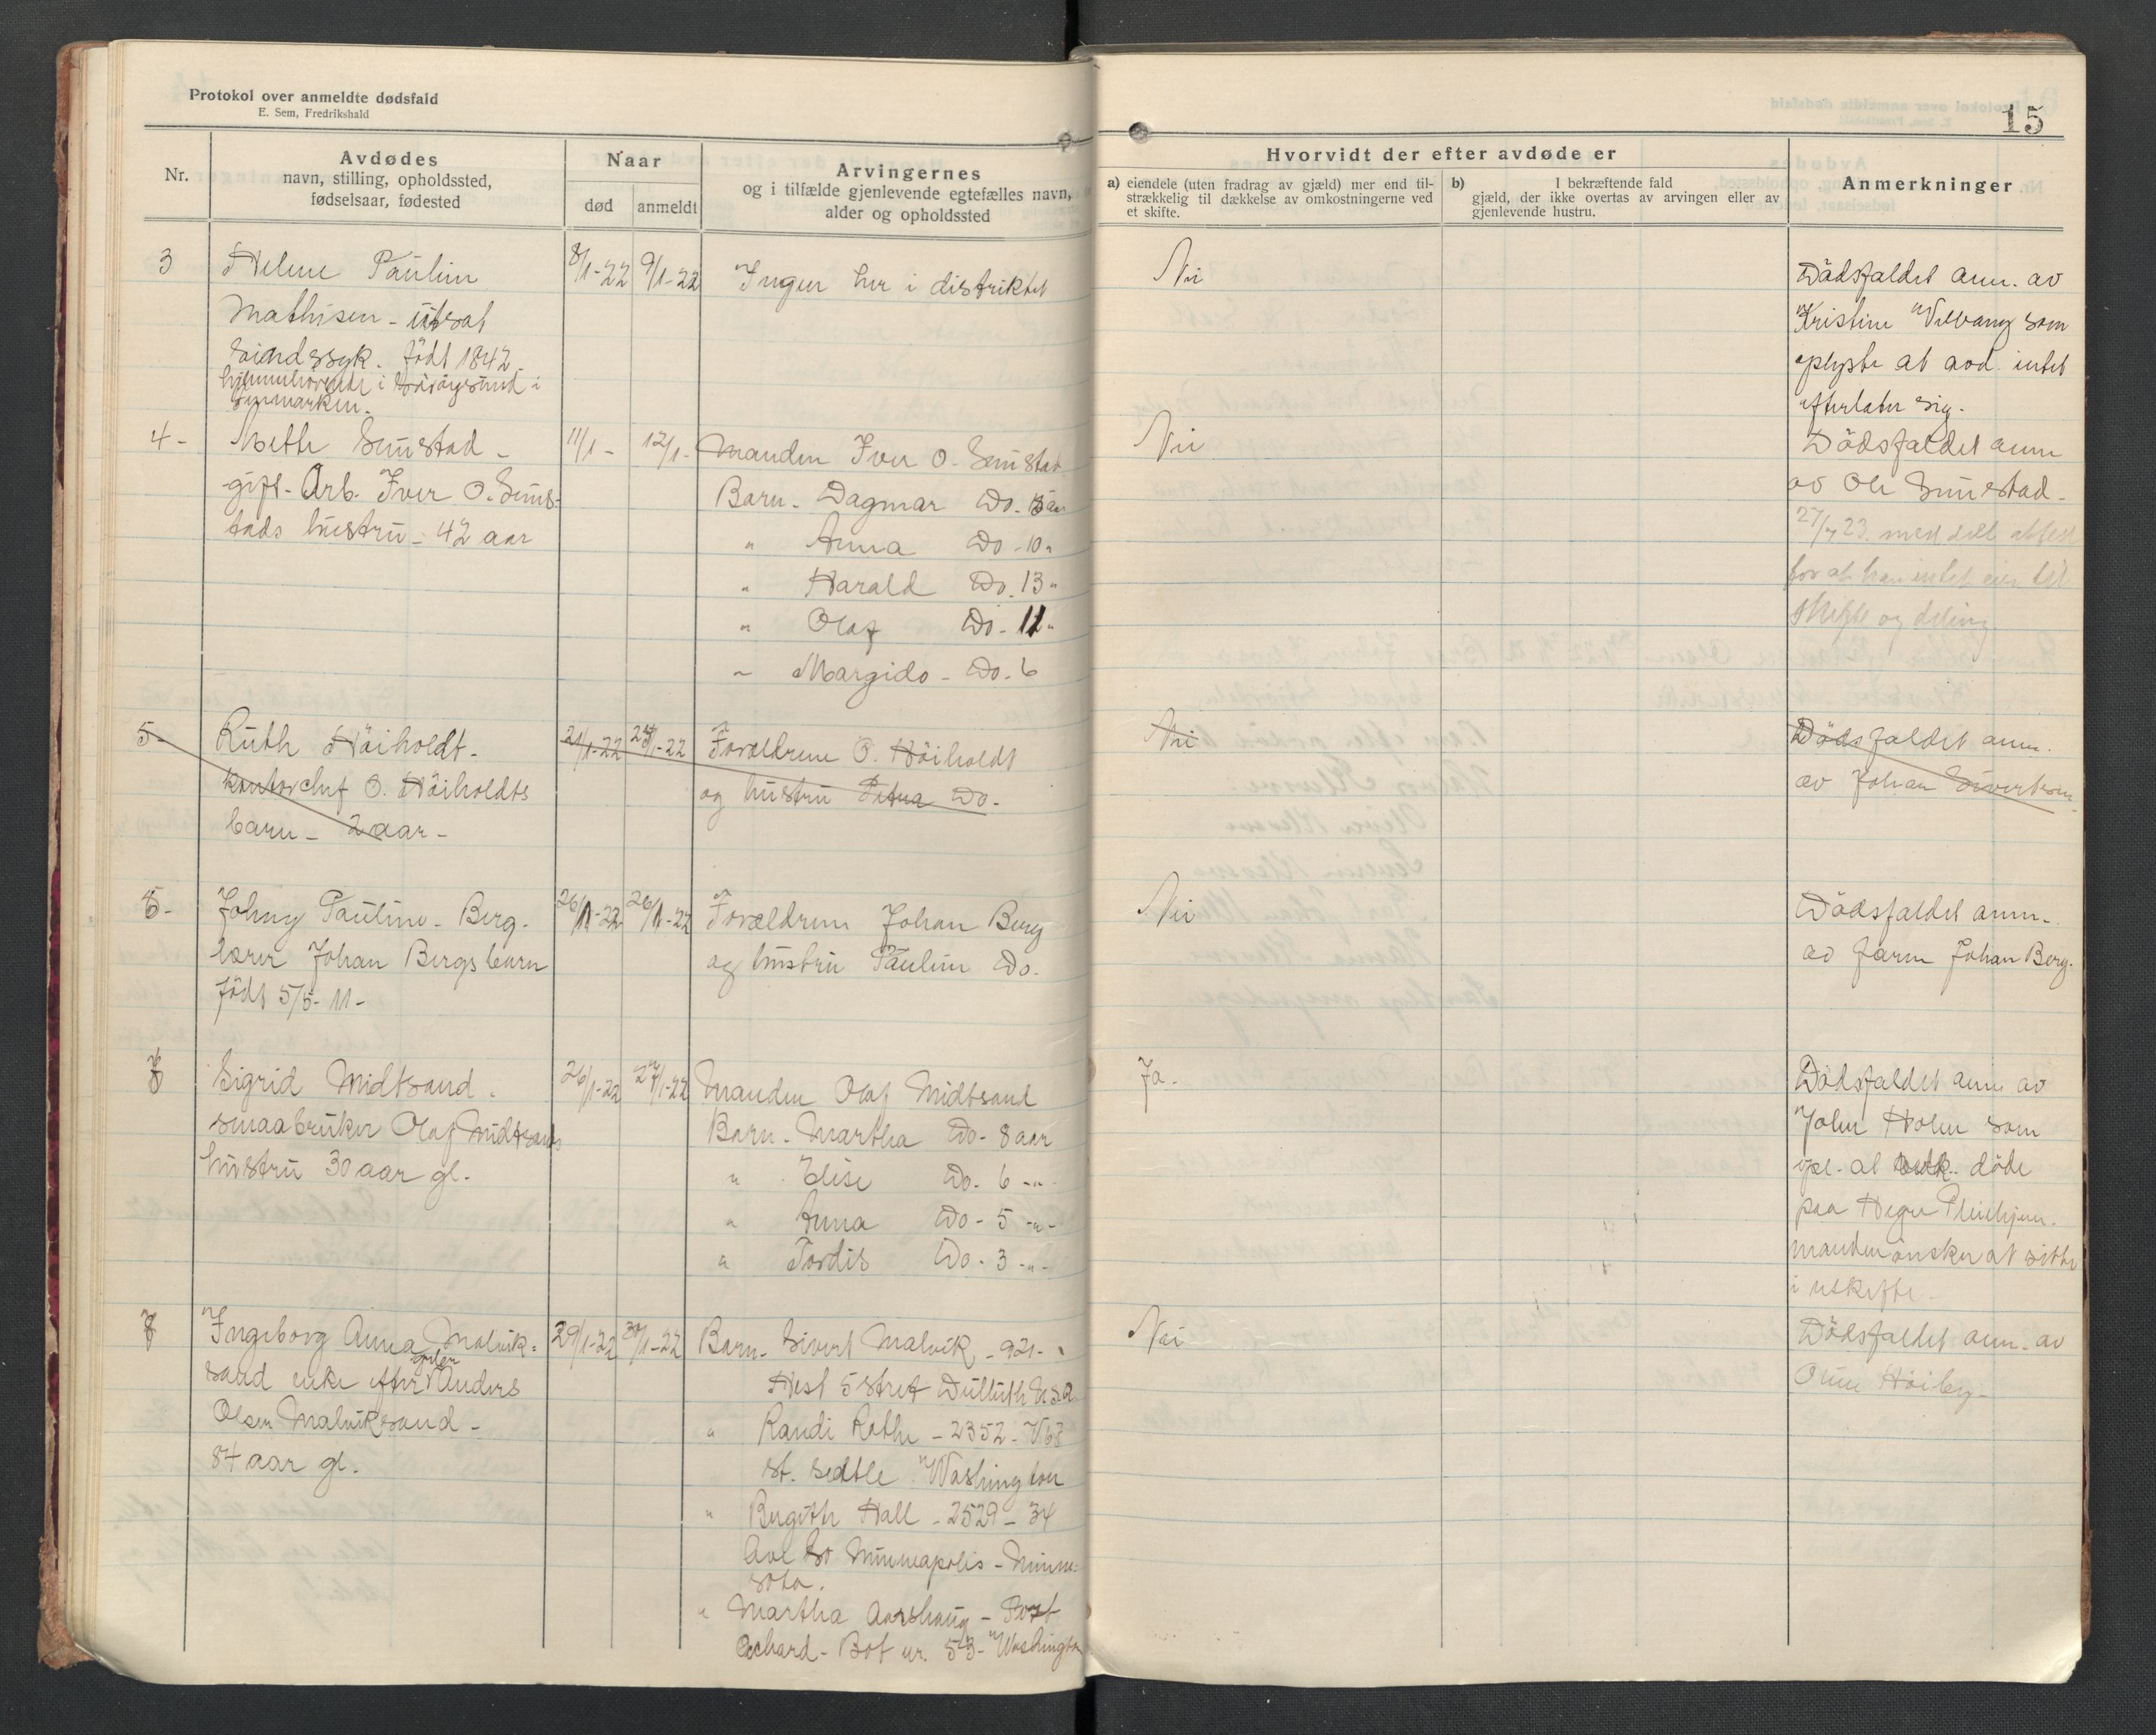 Protokol over anmeldte dødsfald
E. Sem, Fredrikshald
15
Nr.
Avdødes
navn, stilling, opholdssted,
fødselsaar, fødested
Naar
død
anmeldt
Arvingernes
og i tilfælde gjenlevende egtefælles navn,
alder og opholdssted
Hvorvidt der efter avdøde er
a) eiendele (uten fradrag av gjæld) mer end til-
strækkelig til dækkelse av omkostningerne ved
et skifte.
b) I bekræftende fald
gjæld, der ikke overtas av arvingen eller av
gjenlevende hustru.
Anmerkninger
3
Helene Pauline
Mathisen - utsat
sindssyk. født 1842.
hjemmehörende i
Finmarken.
8/1-22
9/1-22
Ingen her i distriktet
Nei
Dödsfaldet anm. av
Kristine som
oplyste at avd. intet
efterlater sig.
4 -
Mette Smistad -
gift. Arb. Iver O. Smis-
tads hustru - 42 aar
11/1 -
12/1 -
Manden Iver O. Smistad
Barn - Dagmar Do.
" Anna Do - 10 "
" Harald Do. 13 "
" Olaf Do - 11 "
" Margido - Do. 6
Nei
Dödsfaldet anm
av Ole Smistad -
27/7 23. med delt attest
for at han intet eier til
skifte og deling
5 -
Ruth Höiholdt -
kontorchef O. Höiholdts
barn - 2 aar -
21/1-22
-22
Forældrene O. Höiholdt
og hustru Petra Do.
Nei
Dödsfaldet anm.
av Johan Sivertsen
5 -
Johny Pauline - Berg.
lærer Johan Bergs barn
född 5/5 - 11 -
26/1-22
26/1-22
Forældrene Johan Berg
og hustru Pauline Do.
Nei
Dödsfaldet anm.
av faren Johan Berg.
Sigrid Midtsand.
smaabruker Olaf Midtsands
hustru 30 aar gl.
26/1-22
27/1-22
Manden Olaf Midtsand
Barn - Martha Do - 8 aar
" Elise Do. 6 - " -
" Anna Do - 5 - " -
" Tordis Do. 3 - " -
Ja.
Dödsfaldet anm av
John Holm som
opl. at döde
paa Hegre Pleiehjem.
manden önsker at sitte
i uskifte -
7
Ingeborg Anna Malvik-
sand enke efter Anders
Olsen Malviksand -
84 aar gl.
29/1-22
30/1-22
Barn - Sivert Malvik - 921 -
Hest 5 stret Dulluth U.S.A
" Randi Rothe - 2352 - W 63
st. sedtle Washington
" Birgitte Hall - 2529 - 34
Ave So Minneapolis - Minne-
sota.
" Martha Aarshaug - Port
Ochard - Bot nr. 53 - Washington
Nei
Dödsfaldet anm. av
Oline Höiby -